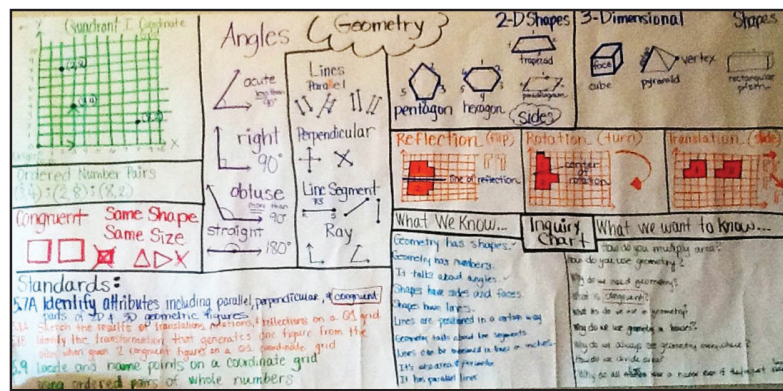 Geometry
Quadrant I Coordinate
X
Ordered Number Pairs
(2,8)
(8,2)
Congruent
Same Shape
Same Size
Angles
acute
less than
90°
right
90°
obtuse
more than
90°
straight
180°
Lines
Parallel
Perpendicular
Line Segment
Ray
2-D Shapes
trapezoid
pentagon
hexagon
parallelogram
sides
3-Dimensional Shapes
face
cube
pyramid
vertex
rectangular
prism
Reflection (flip)
line of reflection
Rotation (turn)
center of
rotation
Translation (slide)
What We Know...
Geometry has shapes.
Geometry has numbers.
It talks about angles.
Shapes have sides and faces.
Shapes have lines.
Lines are positioned in a certain way
Geometry talks about line segments
Lines can be measured in feet or inches.
It has parallel lines
Inquiry
Chart
What we want to know...
How do you multiply area?
How do you use geometry?
Why do we need geometry?
What is congruent?
Standards:
5.7A Identify attributes including parallel, perpendicular, & congruent
parts of 2D & 3D geometric figures
Sketch the results of translations, rotations, & reflections on a Q1 grid
Identify the transformation that generates one figure from the
other when given 2 congruent figures on a Q1 coordinate grid
5.9 Locate and name points on a coordinate grid
using ordered pairs of whole numbers